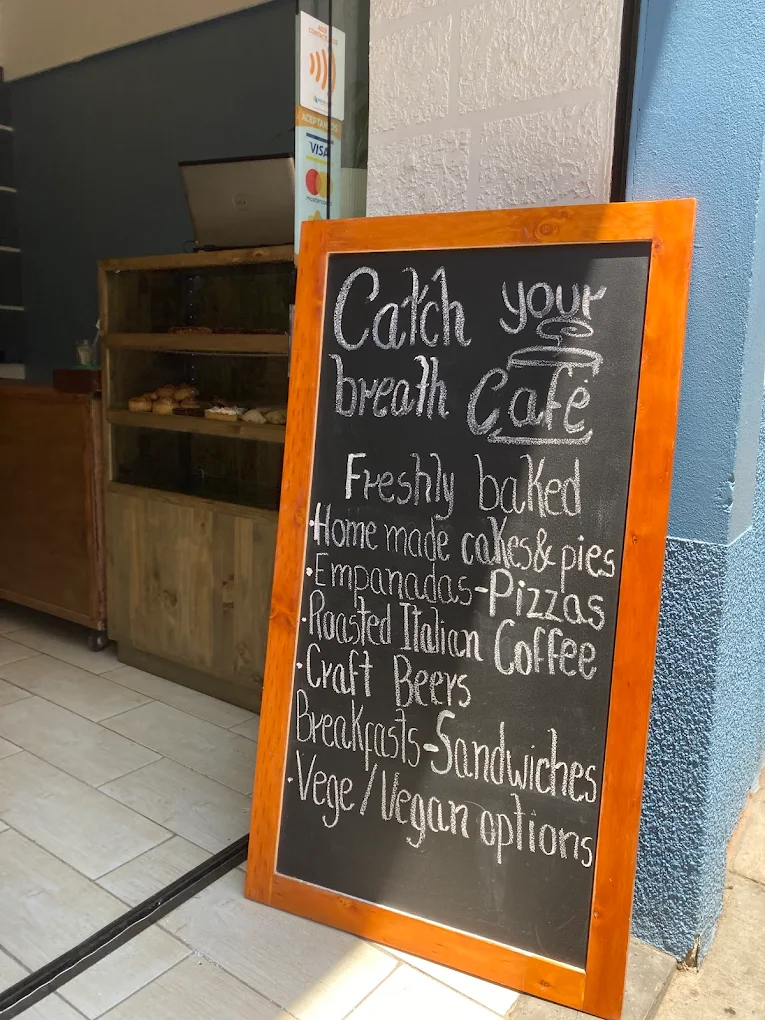 ACEPTAMOS
VISA
mastercard
Catch your
breath Café
Freshly baked
•Home made cakes & pies
•Empanadas-Pizzas
•Roasted Italian Coffee
•Craft Beers
Breakfasts-Sandwiches
•Vege/Vegan options